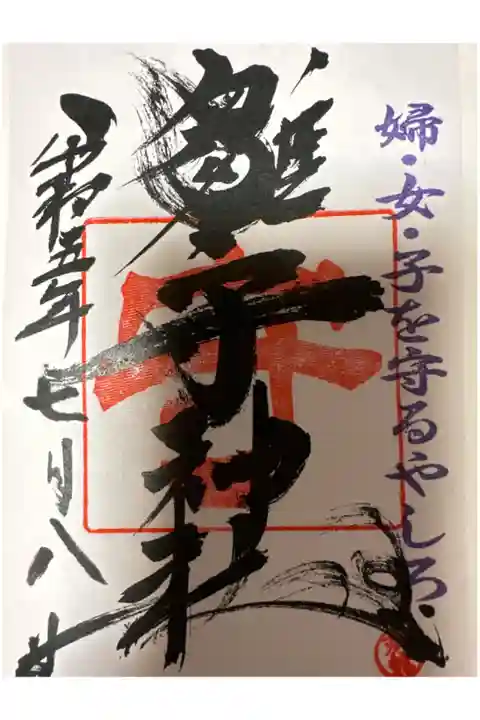 婦・女・子を守るやしろ・
雛子神社
令和五年七月八日